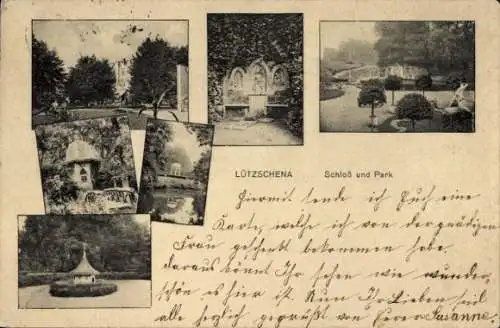 LÜTZSCHENA Schloß und Park
Hiermit sende ich Euch eine
Karte, welche ich von der gnädigen
Frau geschenkt bekommen habe.
daraus könnt Ihr sehen wie wunder,
schön es hier ist. Nun Ihr Lieben seid
alle herzlich gegrüßt von Eurer Susanne.